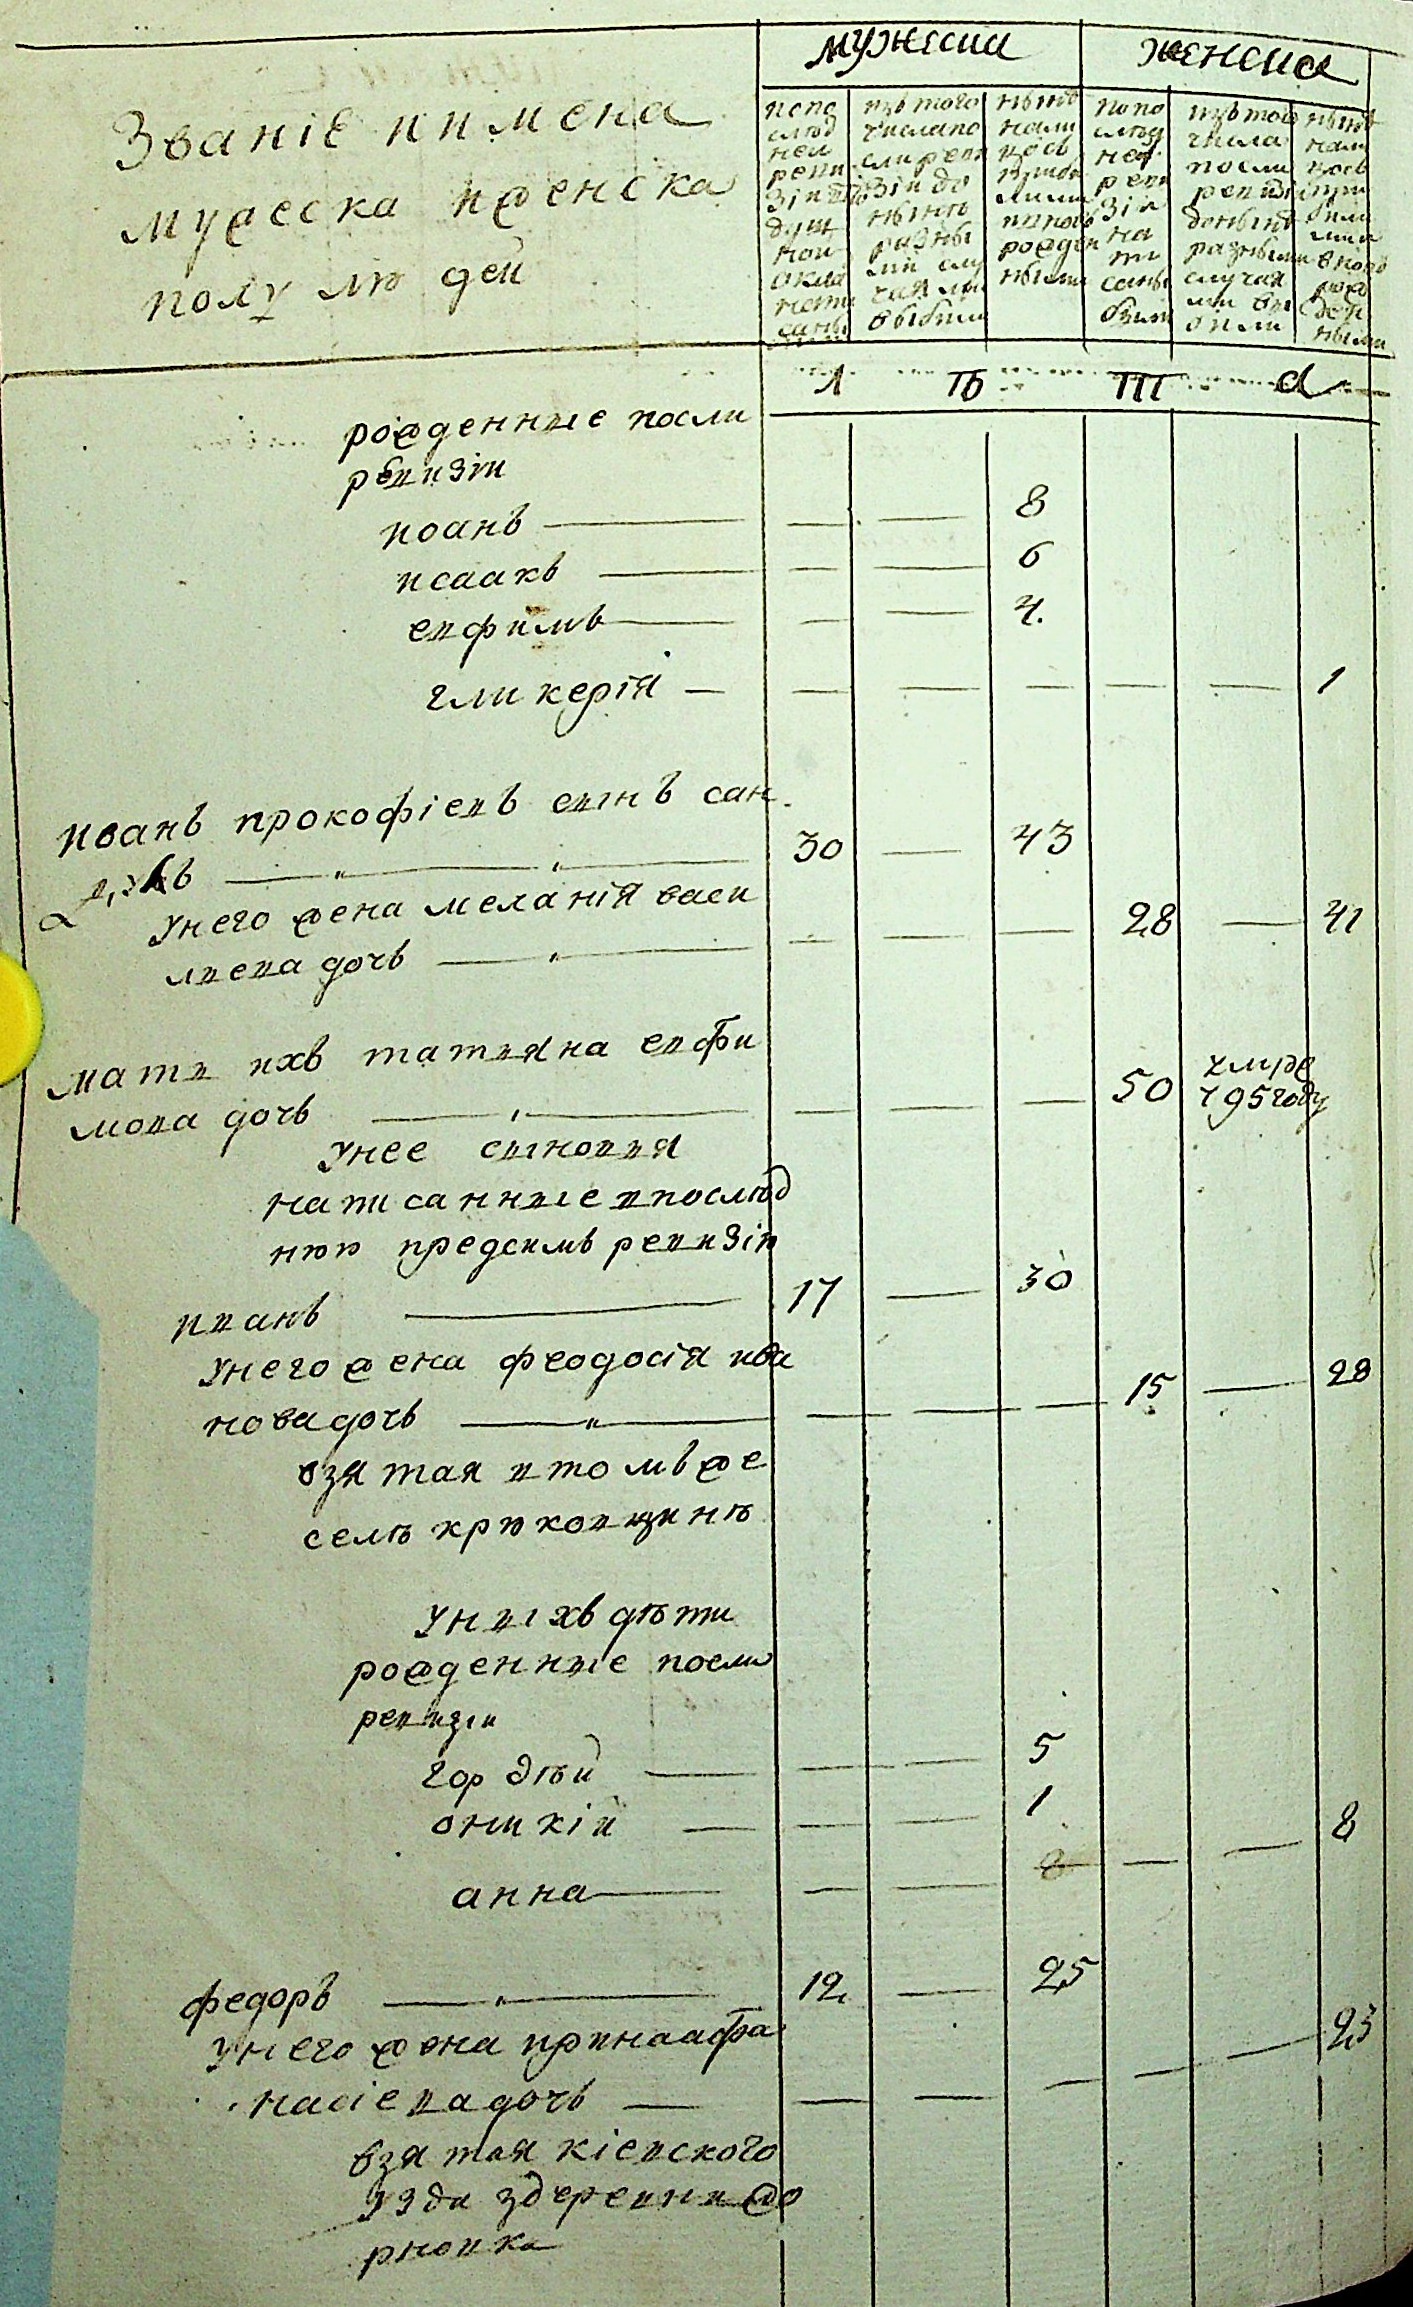 мужеска
женска
Званіе и имена
мужеска и женска
полу людей
попо
слѣд
ней
реви
зіи въ
душ
ной
оклад
напи
саны
изъ того
числа по
сли реви
зіи до
нынѣ
разны
ми слу
чаями
выбыли
нынѣ
нали
цо съ
прибы
лыми
и новъ
рожден
ными
попо
слѣд
ней
реви
зіи
на
пи
саны
были
изъ того
числа
посли
ревизіи
до нынѣ
разными
случая
ми вы
были
нынѣ
нали
цо съ
при
былы
ми и
вновъ
рож
ден
ными
рожденные посли
ревизіи
иоанъ 8
исаакъ 6
евфимъ 4.
гликерія 1
иванъ прокофіевъ сынъ сан
30 43
у него жена меланія васи
лиева дочь 28 41
мати ихъ татияна евфи
мова дочь 50 умре
795 году
у нее сыновия
написанные в послѣд
нюю предсимъ ревизію
иванъ 17 30
у него жена феодосія ива
нова дочь 15 28
взятая в томъ же
селѣ крюковщинѣ
у ныхъ дѣти
рожденные посли
ревизіи
гордѣй 5
оникій 1
анна 8
федоръ 12 25
у него жена ирина афа
насіева дочь 23
взятая кіевского
уэзда здеревни жо
рновка